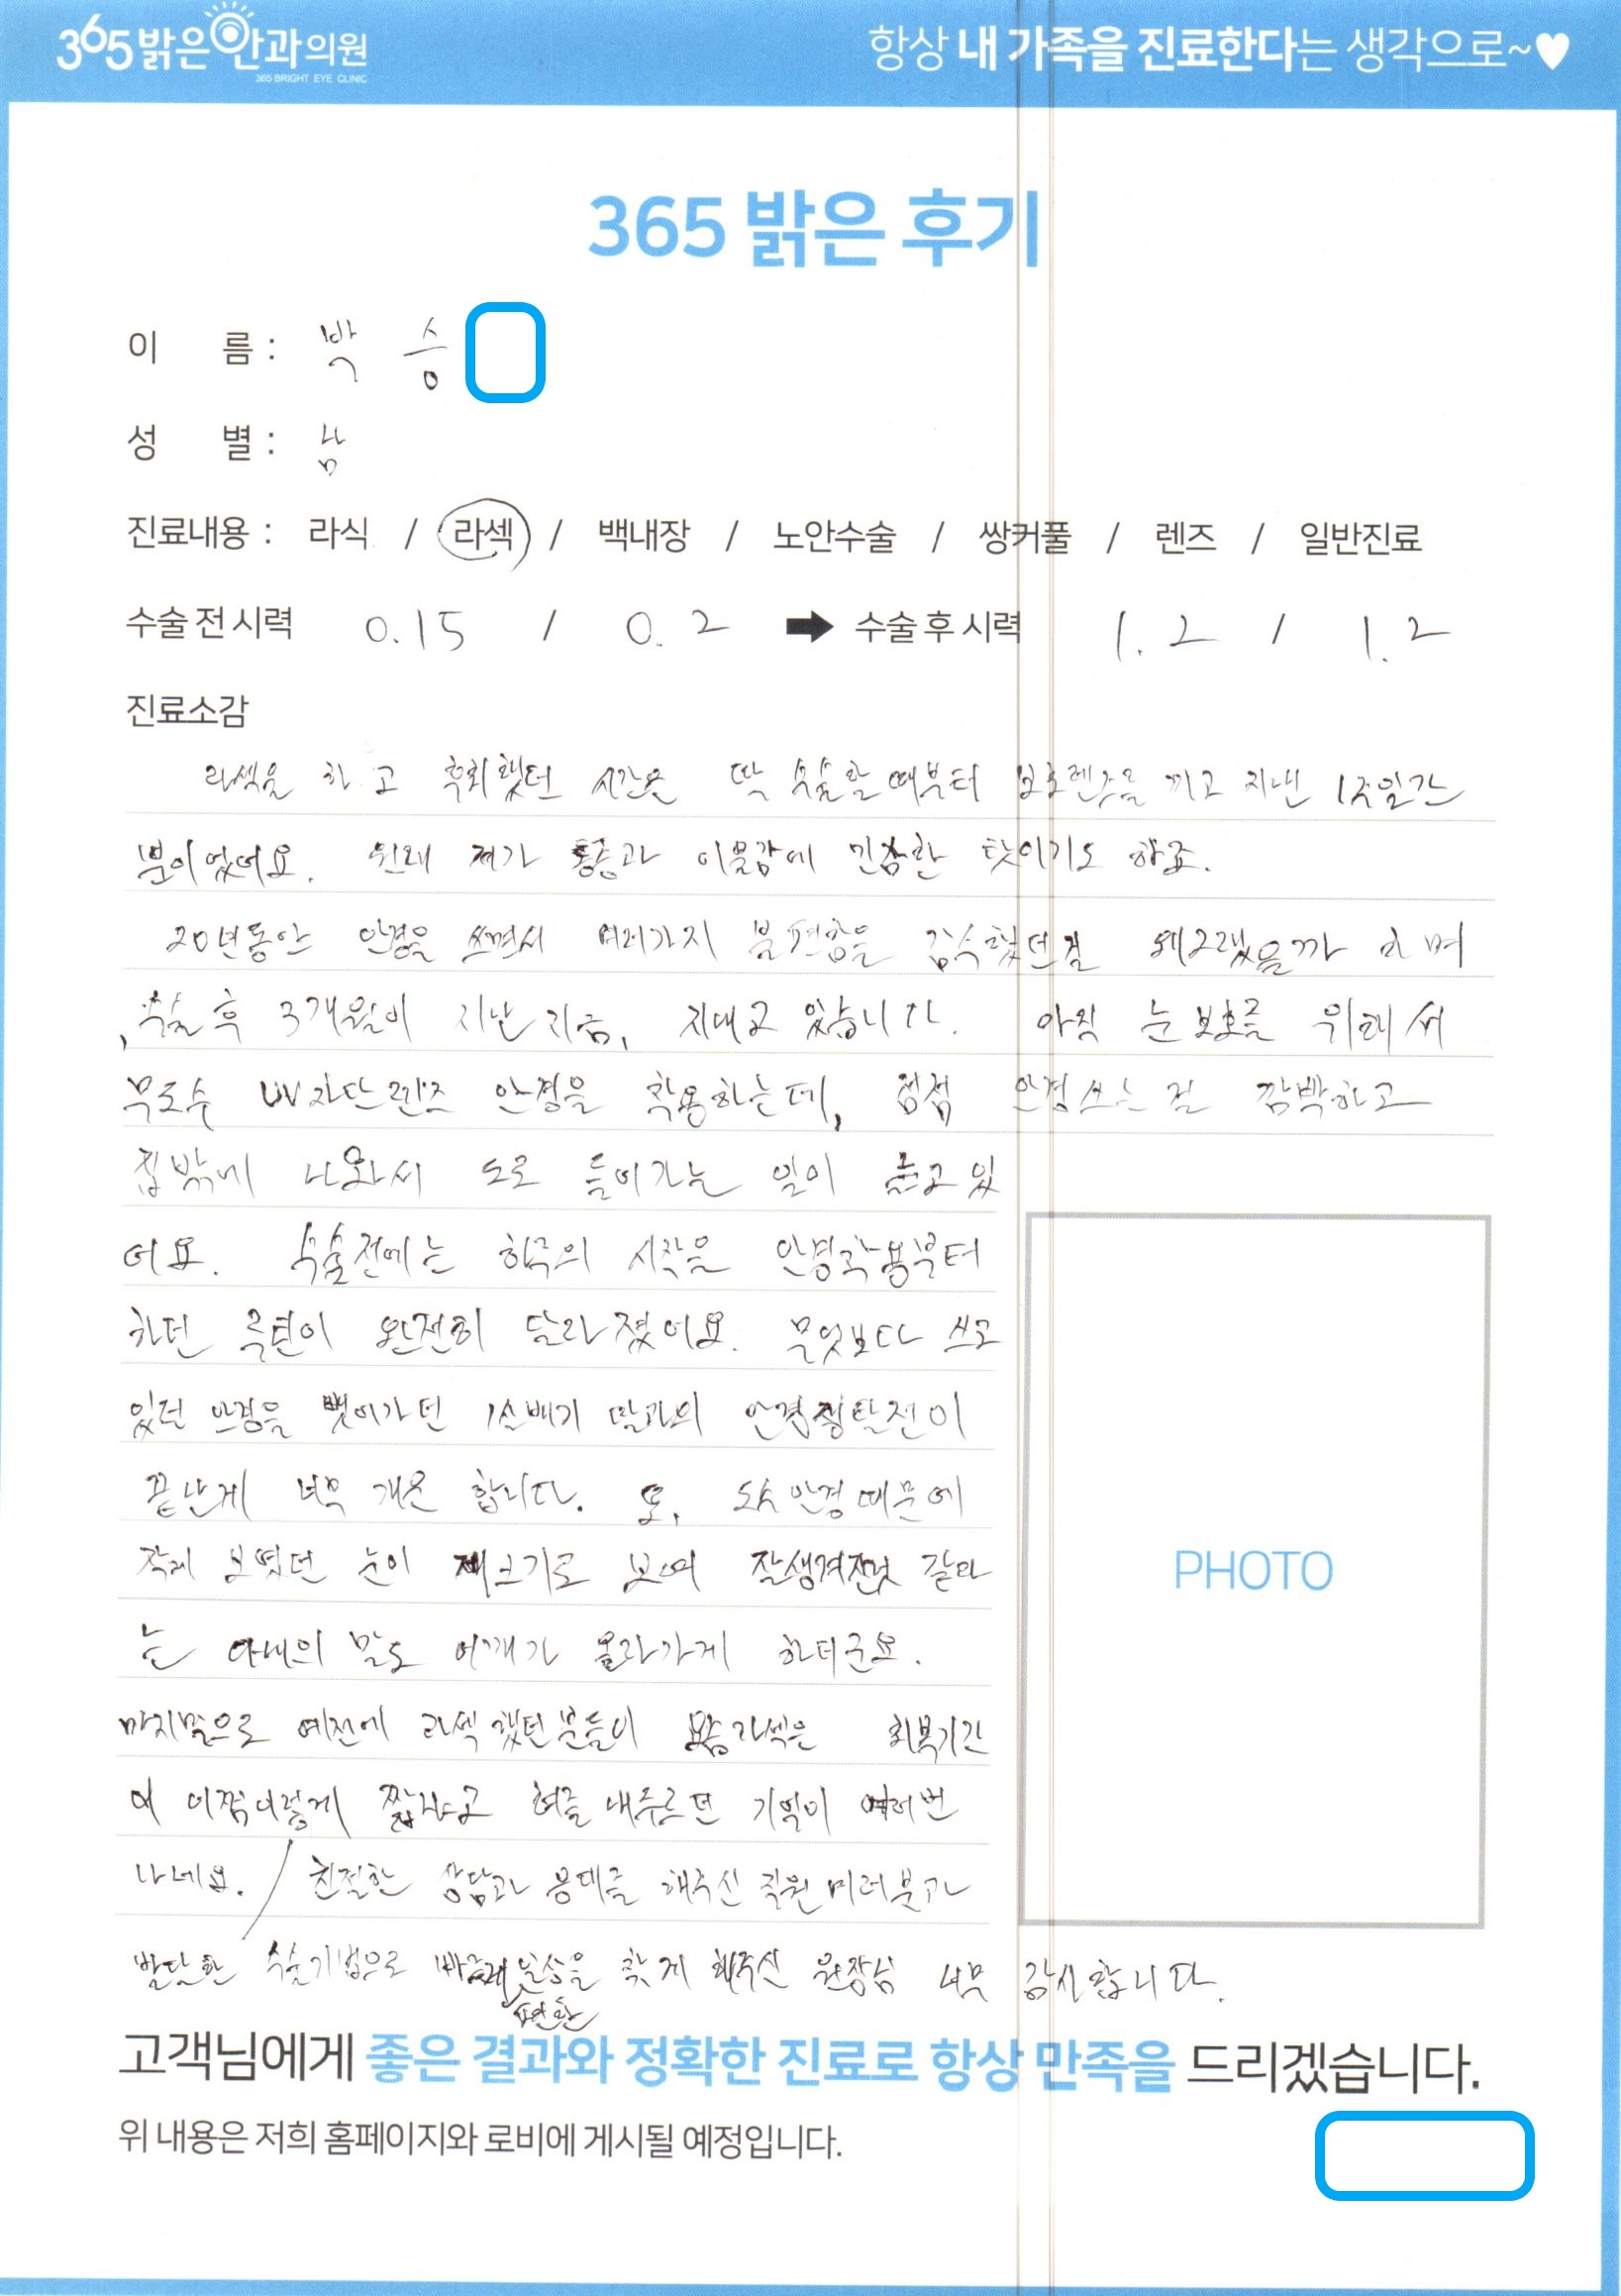 365밝은안과의원
365 BRIGHT EYE CLINIC
항상 내 가족을 진료한다는 생각으로~♥
365 밝은 후기
이 름 : 박 승
성 별 : 남
진료내용 : 라식 / 라섹 / 백내장 / 노안수술 / 쌍커풀 / 렌즈 / 일반진료
수술 전 시력 0.15 / 0.2 ➡ 수술 후 시력 1.2 / 1.2
진료소감
라섹을 하고 후회했던 시간은 딱 수술할때부터 보호렌즈를 끼고 지낸 1주일간
뿐이었어요. 원래 제가 통증과 이물감에 민감한 탓이기도 하죠.
20년동안 안경을 쓰면서 여러가지 불편함을 감수했던걸 왜그랬을까 하며
, 수술후 3개월이 지난 지금, 지내고 있습니다. 아직 눈보호를 위해서
무도수 UV차단렌즈 안경을 착용하는데, 점점 안경쓰는 걸 깜박하고
집밖에 나와서 도로 들어가는 일이 늘고있
어요. 수술전에는 하루의 시작을 안경착용부터
하던 루틴이 완전히 달라졌어요. 무엇보다 쓰고
있던 안경을 뺏어가던 1살배기 딸과의 안경쟁탈전이
끝난게 너무 개운 합니다. 또, 도수안경때문에
작게 보였던 눈이 제크기로 보여 잘생겨졌것 같다
는 아내의 말도 어깨가 올라가게 하더군요.
마지막으로 예전에 라섹했던분들이 요즘라섹은 회복기간
이 어쩜이렇게 짧냐고 혀를 내두르던 기억이 여러번
나네요. / 친절한 상담과 응대를 해주신 직원여러분과
발달한 수술기법으로 빠르게 일상을 찾게 해주신 원장님 너무 감사합니다.
편한
고객님에게 좋은 결과와 정확한 진료로 항상 만족을 드리겠습니다.
위 내용은 저희 홈페이지와 로비에 게시될 예정입니다.
PHOTO